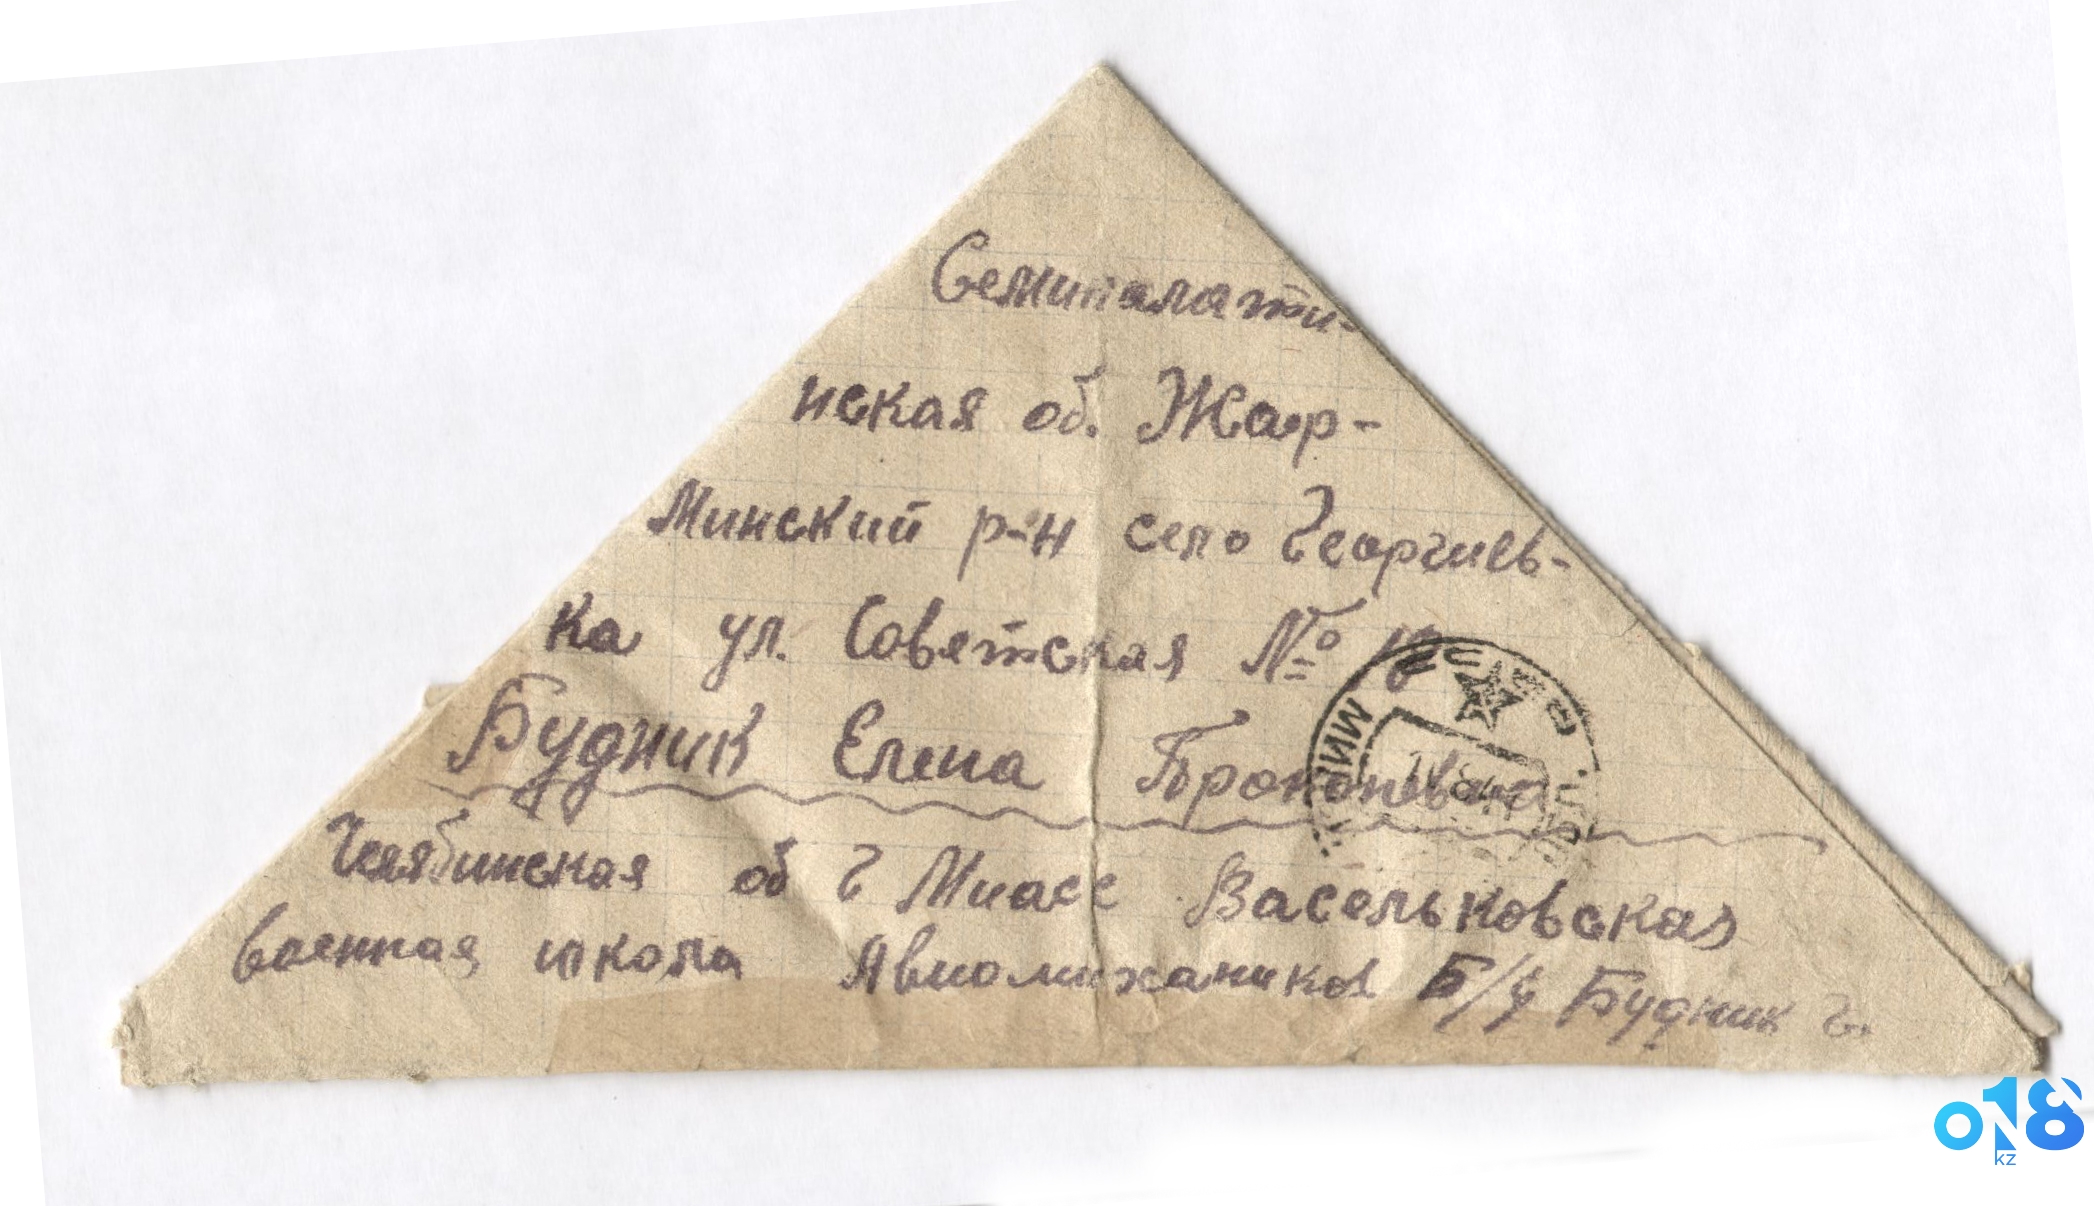 Семипалати-
нская об. Жар-
Минский р-н село Георгиев-
ка ул. Советская №
Будник Елена Прокопевна
Челябинская об г Миасс Васельковская
военная школа Авиомихаников Б/ч Будник Г.
СССР
МИ
018
kz